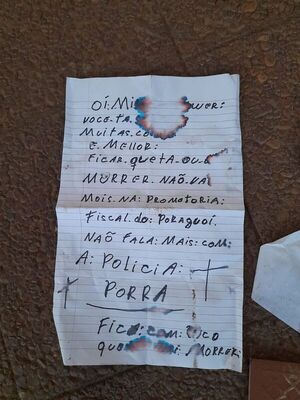 OÍ: Mi
VOCE-TA.
MUITAS.CO
E MELLOR:
FICAR.QUETA-OU-
MORRER. NÃO-VA
MOIS. NA: PROMOTORIA:
FISCAL.DO: PORAGUAÍ.
NÃO FALA: MAIS: COM:
A: POLICIA:
PORRA
FICA: COM: OCO
MORRER: